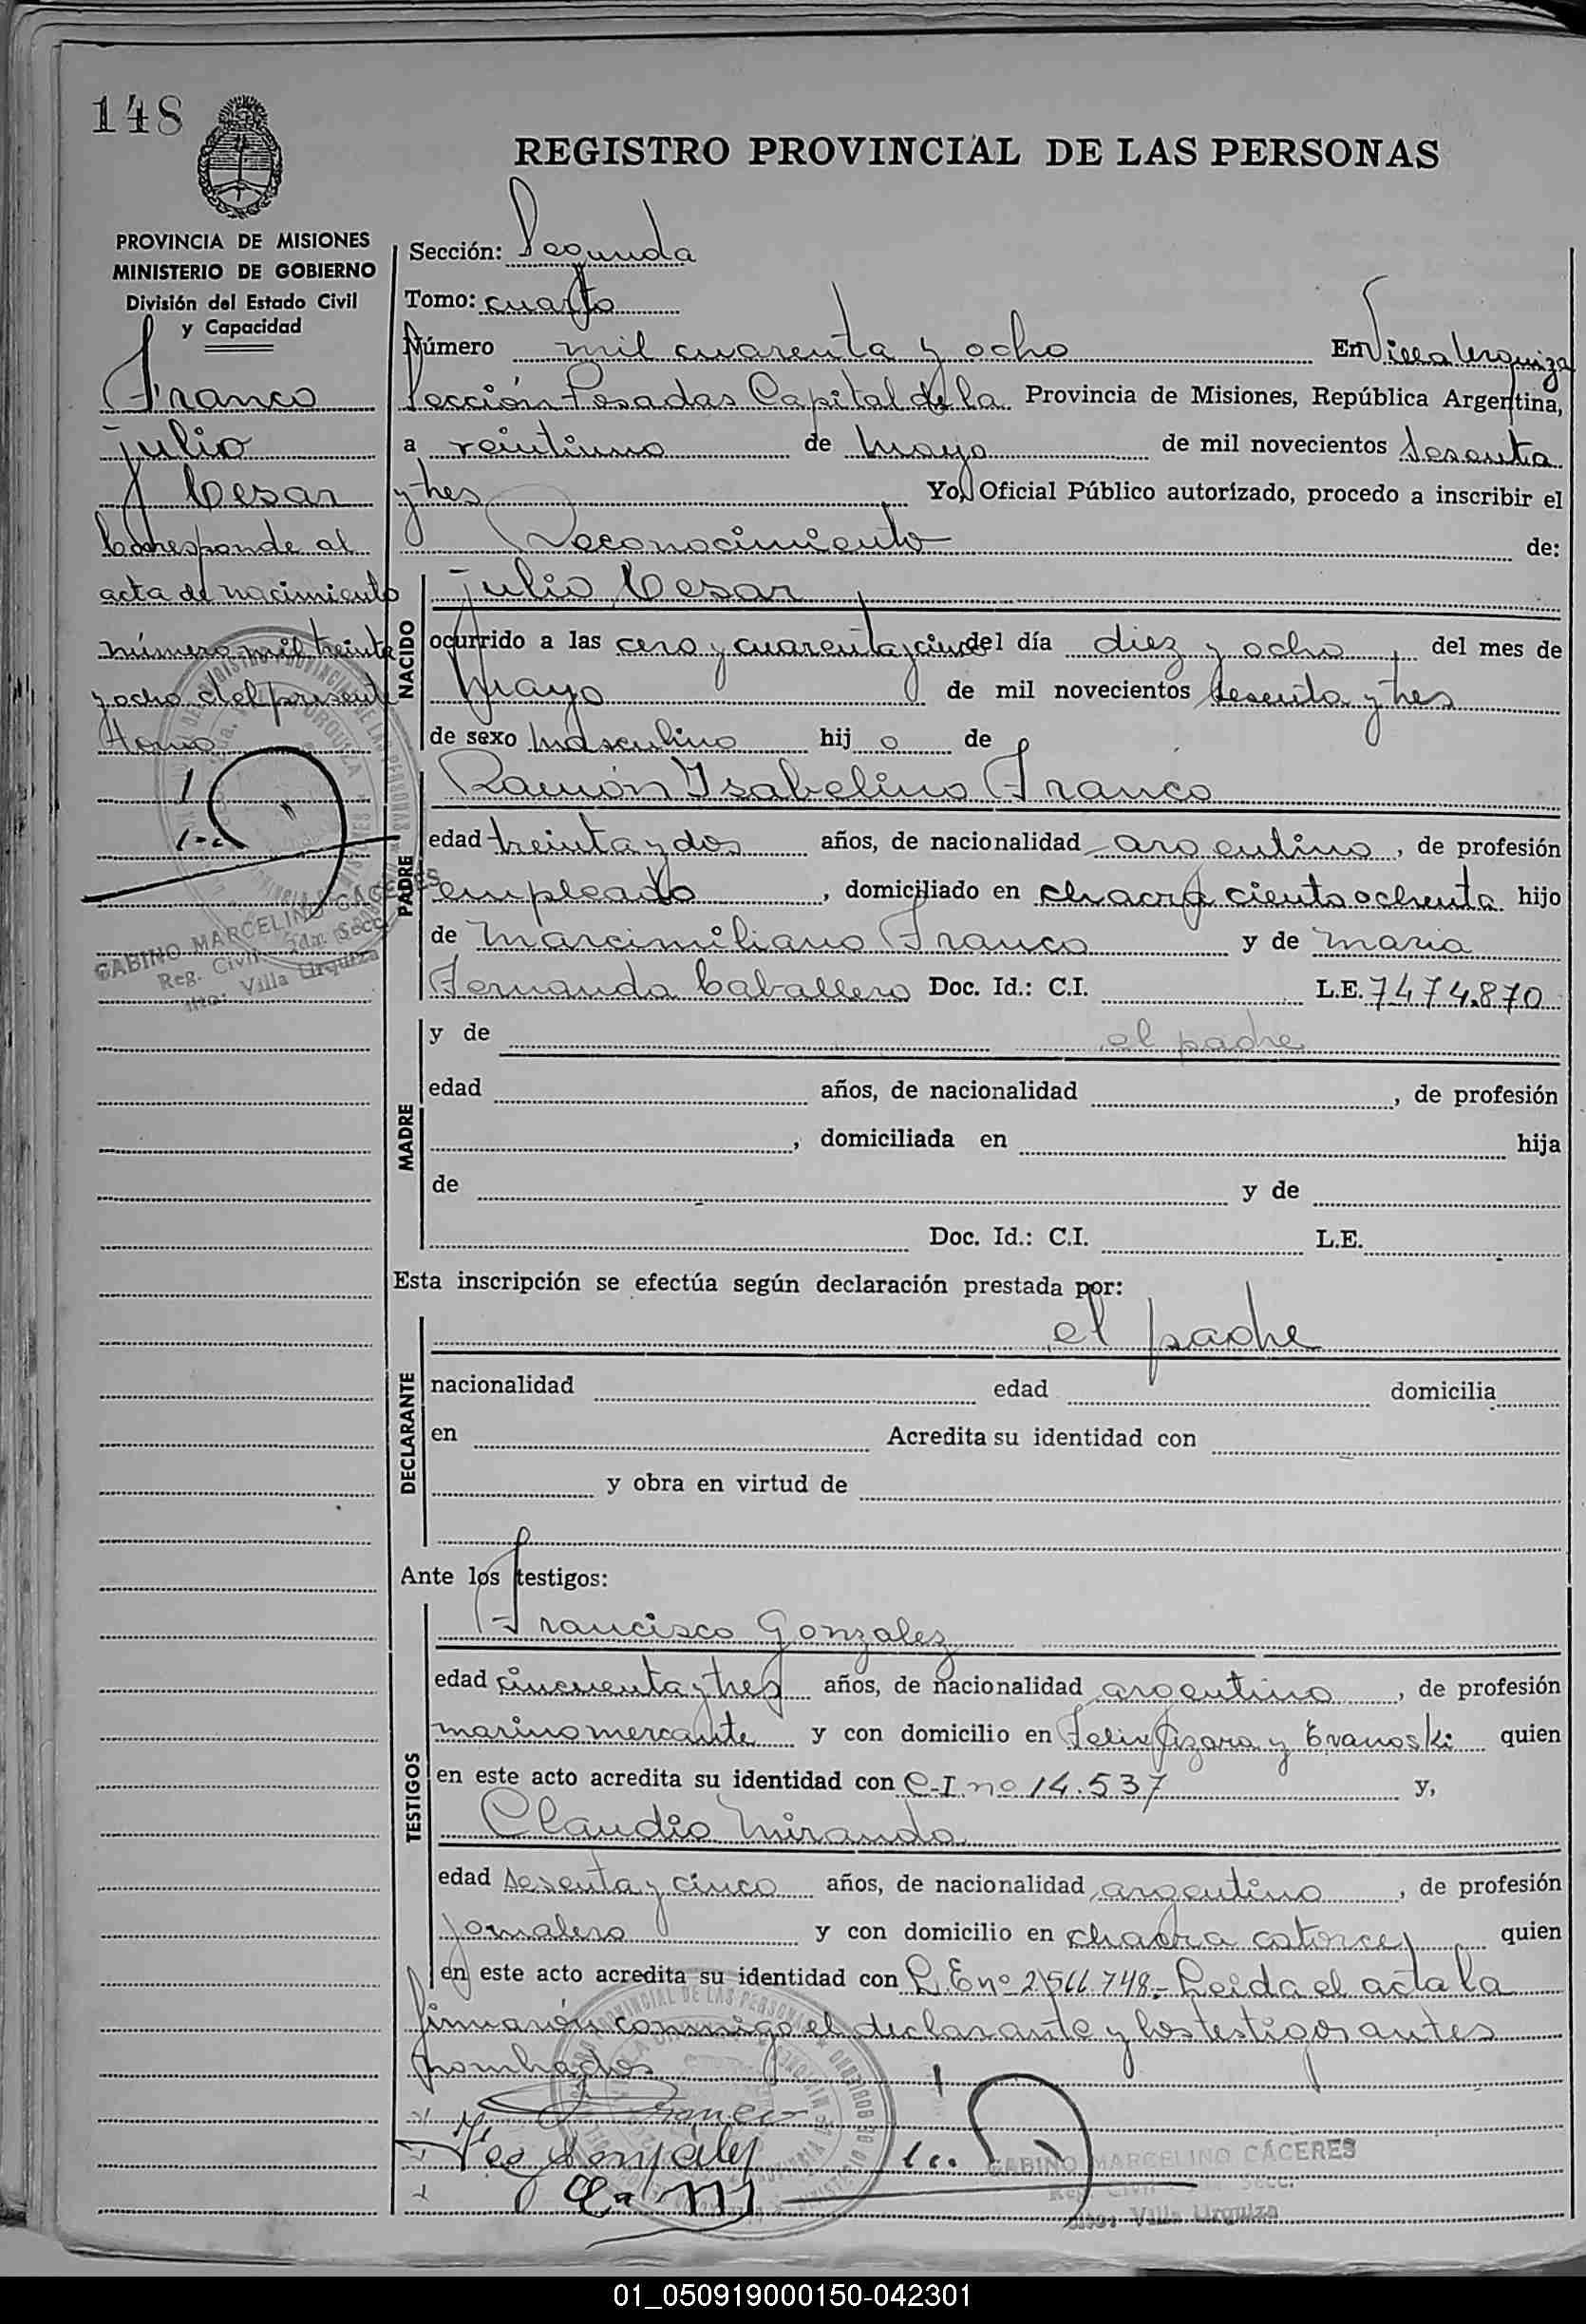 148
REGISTRO PROVINCIAL DE LAS PERSONAS
PROVINCIA DE MISIONES
MINISTERIO DE GOBIERNO
División del Estado Civil
y Capacidad
Franco
Julio
Cesar
Corresponde al
acta de nacimiento
número mil treinta
y ocho del presente
tomo
GABINO MARCELINO CÁCERES
Reg. Civil 2da. Secc.
Villa Urquiza
Sección: Segunda
Tomo: cuarto
Número mil cuarenta y ocho En Villa Urquiza
Sección Posadas Capital de la Provincia de Misiones, República Argentina,
a veintiuno de Mayo de mil novecientos sesenta
y tres Yo, Oficial Público autorizado, procedo a inscribir el
Reconocimiento de:
NACIDO
Julio Cesar
ocurrido a las cero y cuarenta y cinco del día diez y ocho, del mes de
Mayo de mil novecientos sesenta y tres
de sexo Masculino hijo de
PADRE
Ramón Ysabelino Franco
edad treinta y dos años, de nacionalidad argentino, de profesión
empleado, domiciliado en chacra ciento ochenta hijo
de Marcimiliano Franco y de Maria
Fernanda Caballero Doc. Id.: C.I. L.E. 7474.870
MADRE
y de el padre
edad años, de nacionalidad , de profesión
, domiciliada en hija
de y de
Doc. Id.: C.I. L.E.
Esta inscripción se efectúa según declaración prestada por:
DECLARANTE
el padre
nacionalidad edad domicilia
en Acredita su identidad con
y obra en virtud de
Ante los testigos:
TESTIGOS
Francisco Gonzalez
edad cincuenta y tres años, de nacionalidad argentino, de profesión
marino mercante y con domicilio en Felix Azara y Evanoski quien
en este acto acredita su identidad con C.I. nº 14.537 y,
Claudio Miranda
edad sesenta y cinco años, de nacionalidad argentino, de profesión
jornalero y con domicilio en chacra catorce, quien
en este acto acredita su identidad con L.E nº 2.566.748.- Leida el acta la
firmaron conmigo el declarante y los testigos antes
nombrados
Franco
Fco Gonzalez
GABINO MARCELINO CÁCERES
Reg. Civil Secc.
Villa Urquiza
01_050919000150-042301